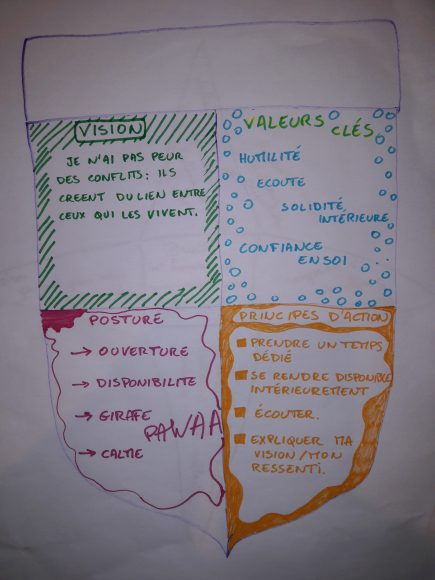 VISION
JE N'AI PAS PEUR
DES CONFLITS: ILS
CREENT DU LIEN ENTRE
CEUX QUI LES VIVENT.
VALEURS CLÉS
HUMILITÉ
ECOUTE
SOLIDITÉ
INTÉRIEURE
CONFIANCE
EN SOI
POSTURE
→ OUVERTURE
→ DISPONIBILITE
→ GIRAFE
PAWAA
→ CALME
PRINCIPES D'ACTION
PRENDRE UN TEMPS
DÉDIÉ
SE RENDRE DISPONIBLE
INTÉRIEUREMENT
ÉCOUTER.
EXPLIQUER MA
VISION/MON
RESSENTI.